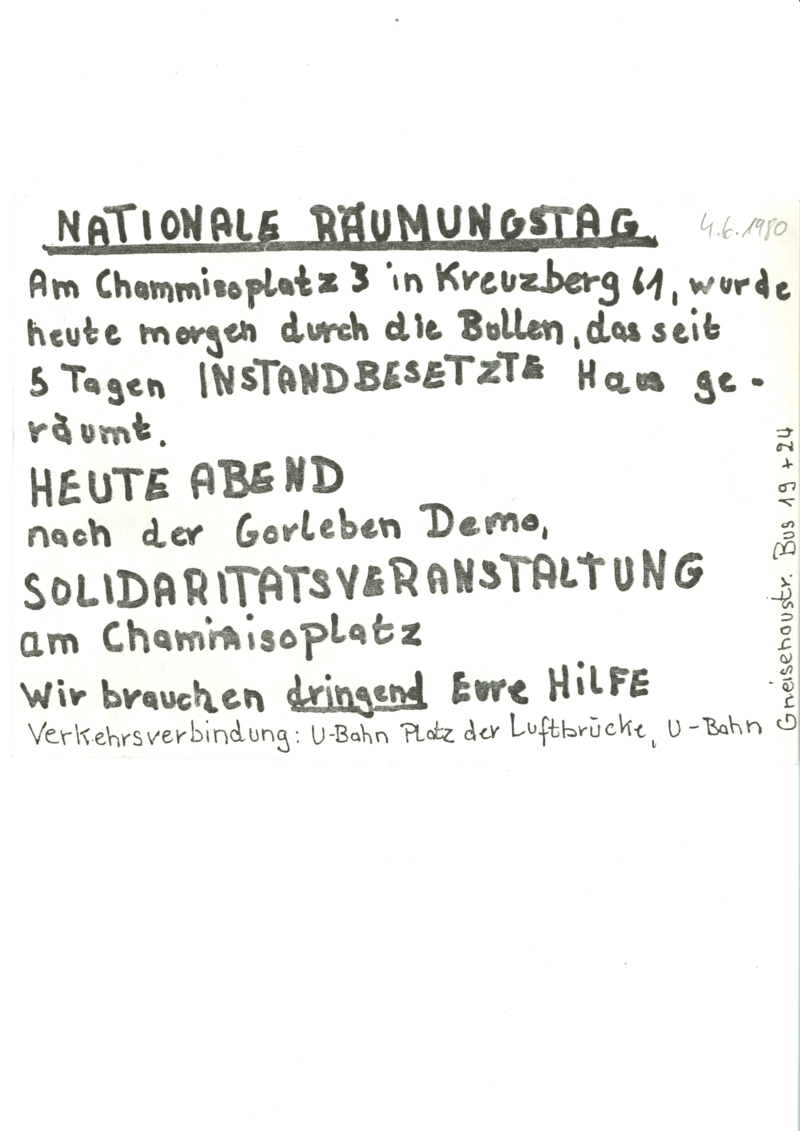 NATIONALE RÄUMUNGSTAG
4.6.1980
Am Chammisoplatz 3 in Kreuzberg 61, wurde
heute morgen durch die Bullen, das seit
5 Tagen INSTANDBESETZTE Haus ge-
räumt.
HEUTE ABEND
nach der Gorleben Demo,
SOLIDARITATSVERANSTALTUNG
am Chammisoplatz
Wir brauchen dringend Eure HILFE
Verkehrsverbindung: U-Bahn Platz der Luftbrücke, U-Bahn
Gneisenaustr. Bus 19 + 24